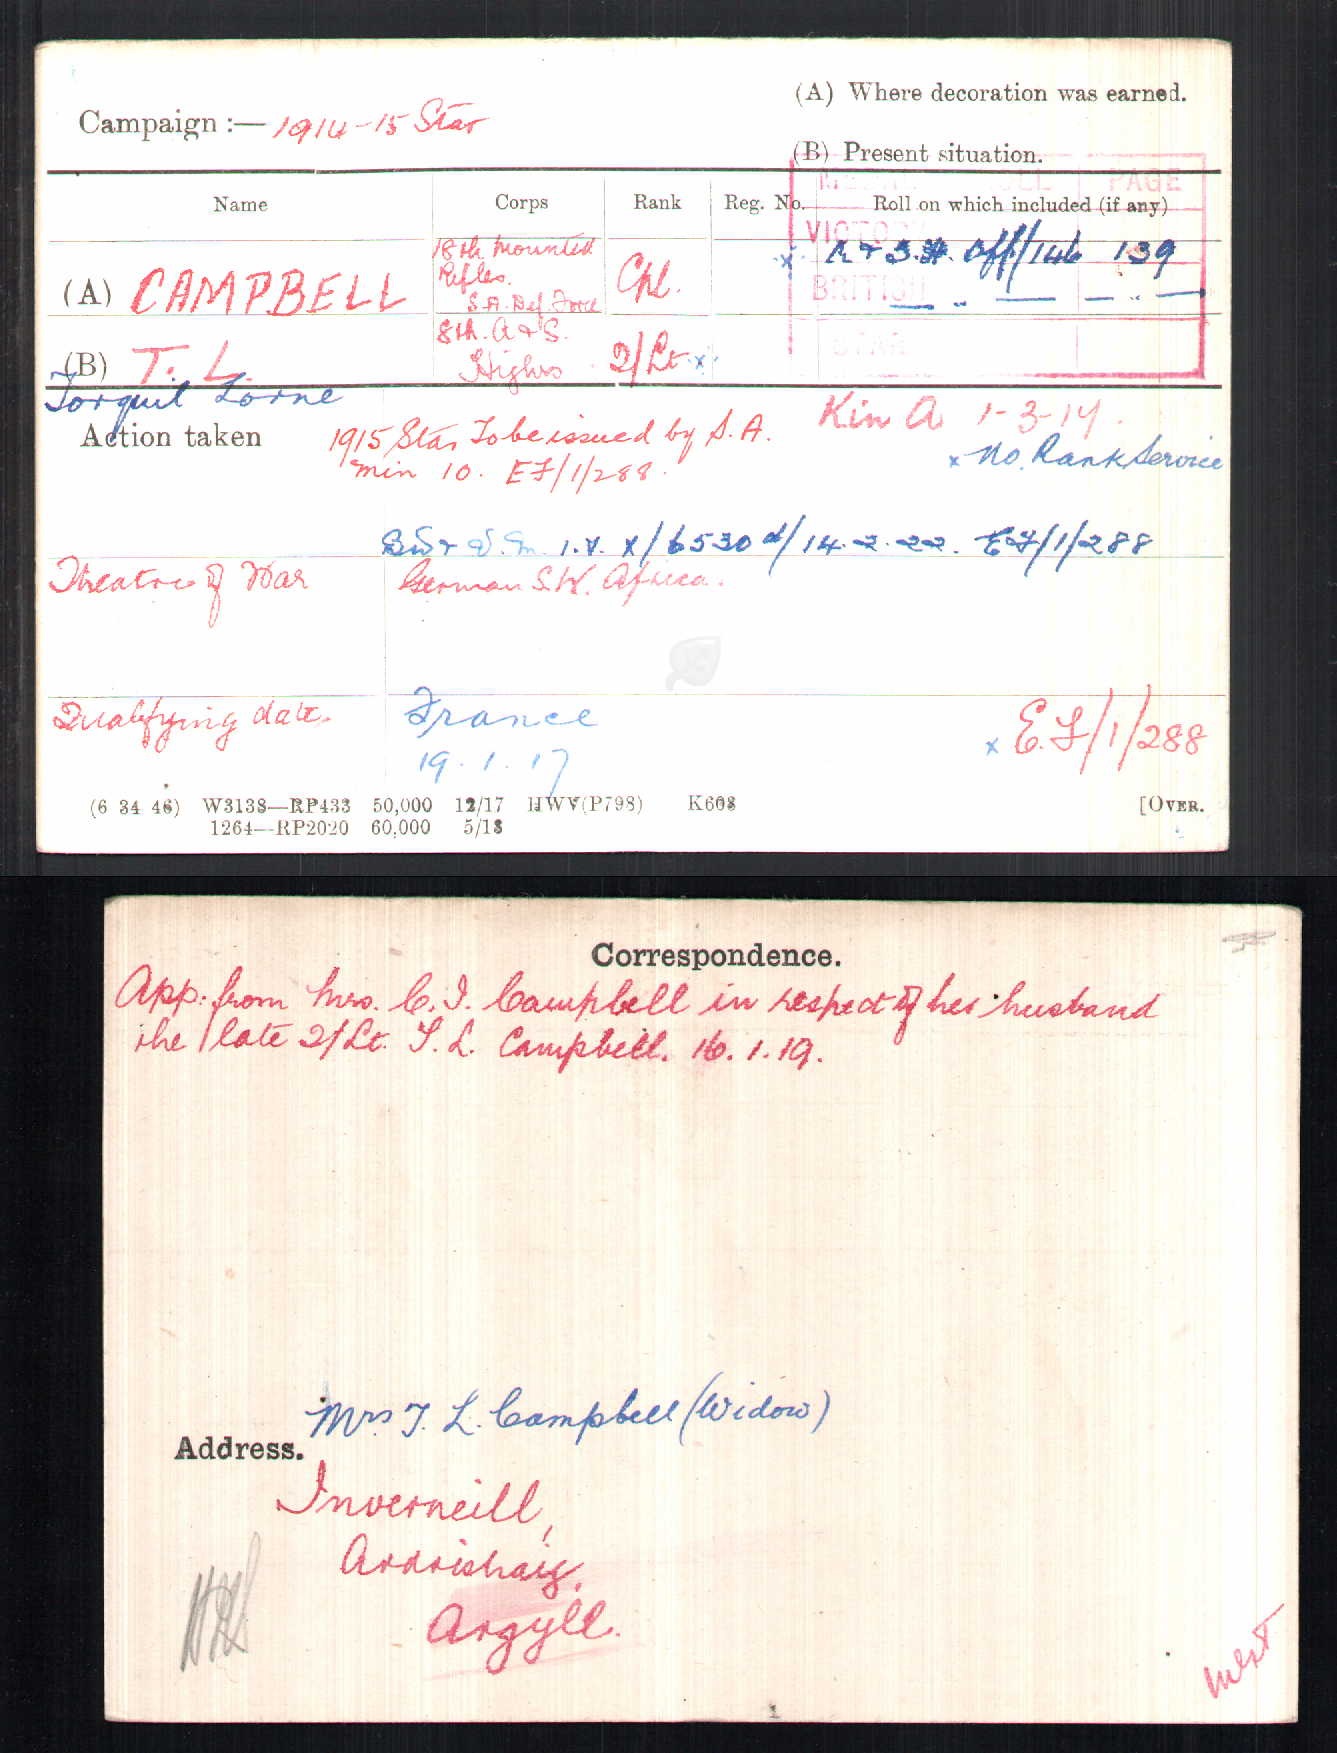 (A) Where decoration was earned.
Campaign :— 1914-15 Star
(B) Present situation.
MEDAL ROLL PAGE
Name Corps Rank Reg. No. Roll on which included (if any)
VICTORY
BRITISH
STAR
18th Mounted
Rifles.
S.A. Def. Force
(A) CAMPBELL Cpl. x A & S.H. Off/146 139
— „ — — „ —
8th. A & S.
Highrs
(B) T. L. 2/Lt. x
Torquil Lorne
Action taken 1915 Star To be issued by S.A.
min 10. EF/1/288.
Kin A 1-3-17.
x No. Rank Service
BW & V.M. I.V. X/6530 d/14.2.22. EF/1/288
Theatre of War German S.W. Africa.
Qualifying date. France
19.1.17
x E.F/1/288
(6 34 46) W3138—RP433 50,000 12/17 HWV(P798) K608 [OVER.
1264—RP2020 60,000 5/18
Correspondence.
App: from Mrs. C. I. Campbell in respect of her husband
the late 2/Lt. T. L. Campbell. 16.1.19.
Mrs T. L. Campbell (Widow)
Address.
Inverneill,
Ardrishaig,
Argyll.